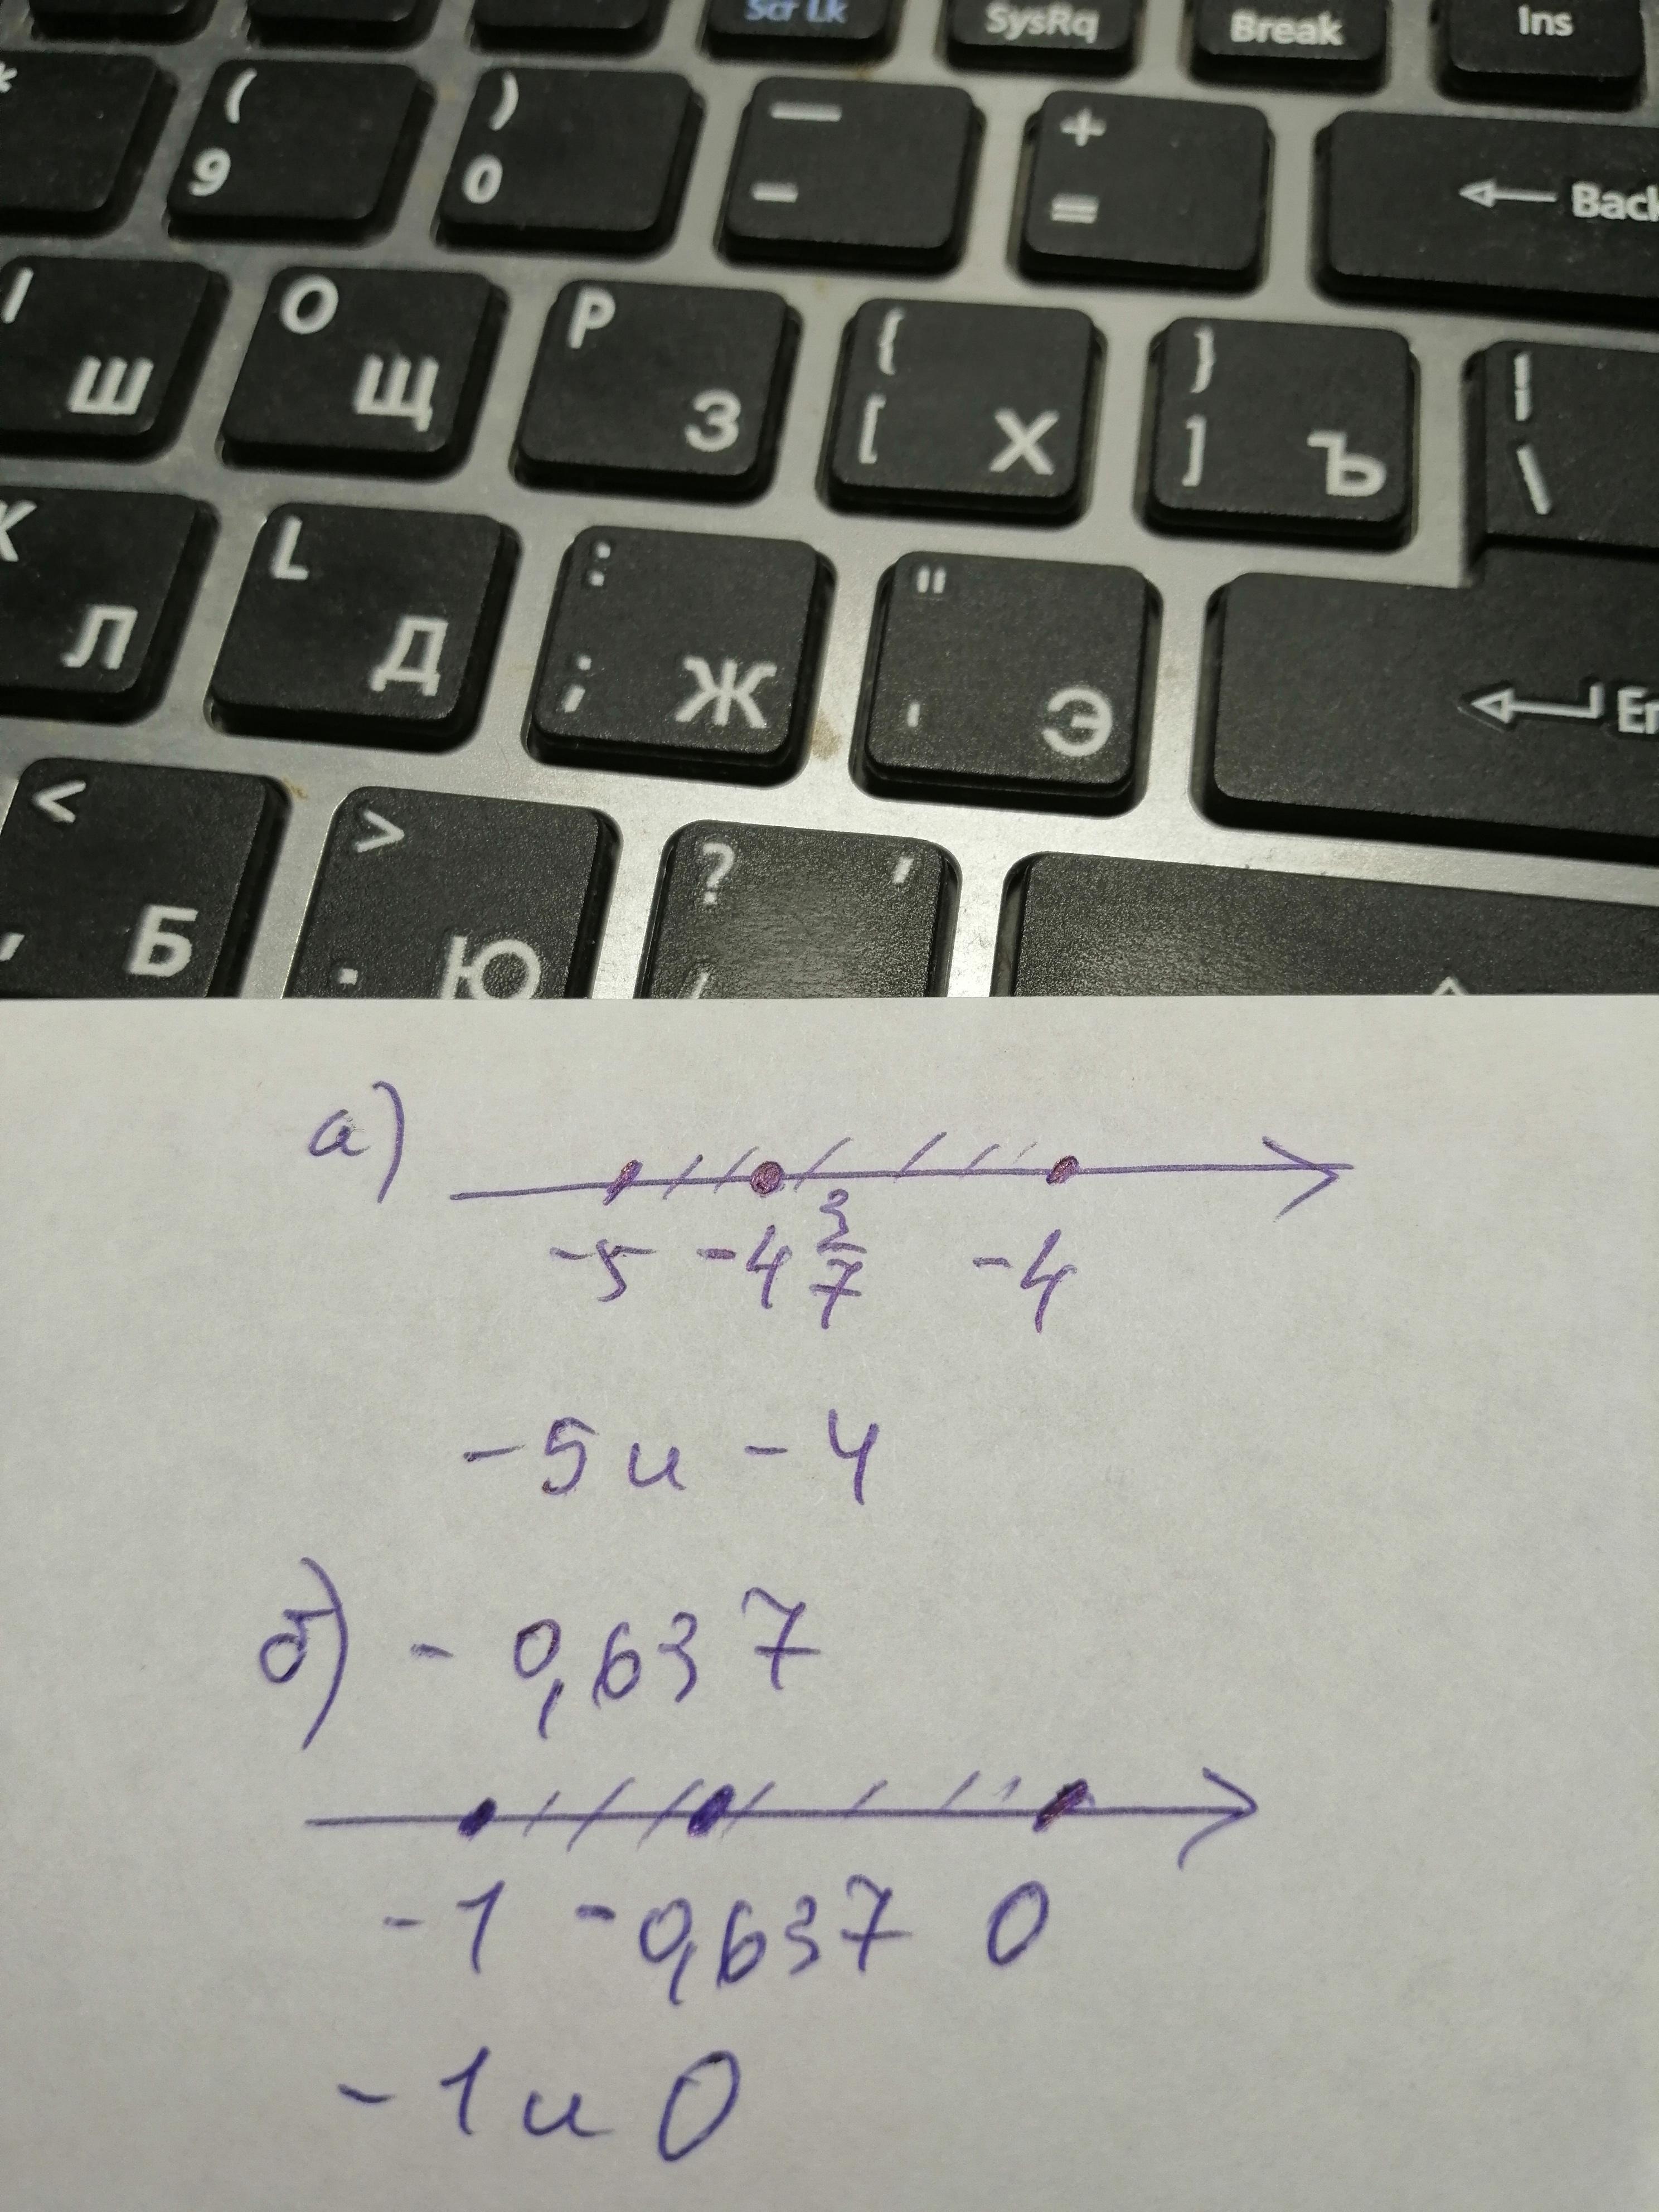 Scr Lk SysRq Break Ins
( 9 ) 0 — - + = Back
I Ш O Щ P З { [ Х } ] Ъ | \
K Л L Д : ; Ж " ' Э
< , Б > . Ю ? /
а)
-5 -4 3/7 -4
-5 и -4
б) - 0,637
-1 -0,637 0
-1 и 0